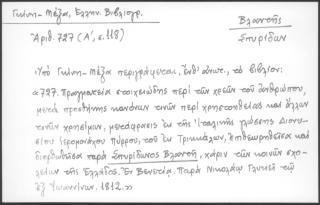 Γκίνη - Μέξα, Ἑλλην. Βιβλιογρ.
Ἀριθ. 727 (Α΄, σ. 118)
Βλαντῆς
Σπυρίδων
Ὑπὸ Γκίνη - Μέξα περιγράφεται, ἔνθ' ἀνωτ., τὸ βιβλίον:
«727. Πραγματεία στοιχειώδης περὶ τῶν χρεῶν τοῦ ἀνθρώπου,
μετὰ προσθήκης κανόνων τινῶν περὶ χρηστοηθείας καὶ ἄλλων
τινῶν χρησίμων, μετάφρασις ἐκ τῆς Ἰταλικῆς γλώσσης Διονυ-
σίου ἱερομονάχου Πύρρου, τοῦ ἐκ Τρικκάλων, ἐπιθεωρηθεῖσα καὶ
διορθωθεῖσα παρὰ Σπυρίδωνος Βλαντῆ, χάριν τῶν κοινῶν σχο-
λείων τῆς Ἑλλάδος. Ἐν Βενετίᾳ. Παρὰ Νικολάῳ Γλυκεῖ τῷ
ἐξ Ἰωαννίνων. 1812.»